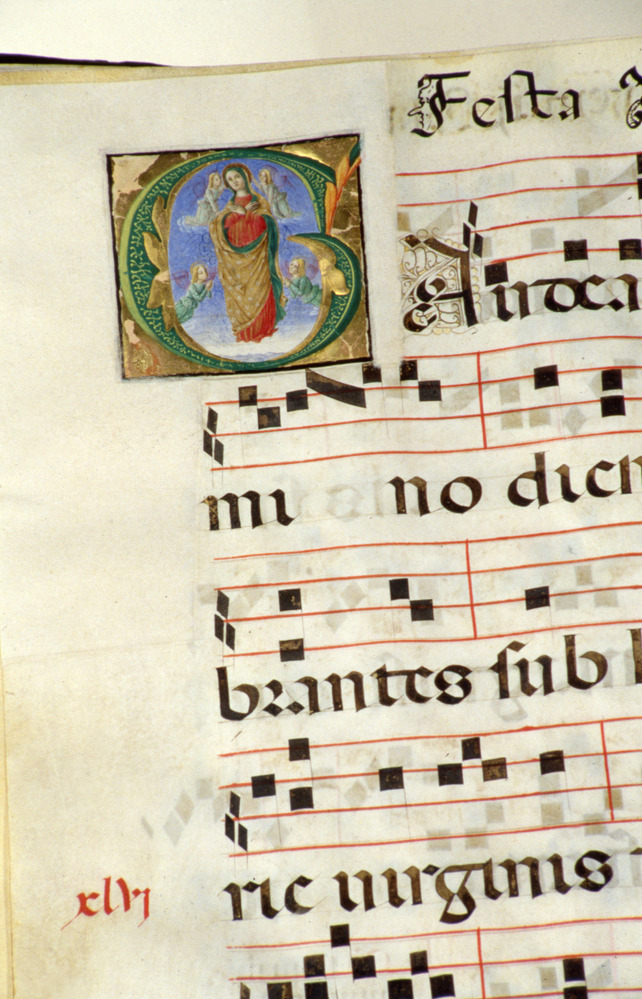 Festa
GAudea
mi no diem
brantes sub h
rie uirginis
xlvj